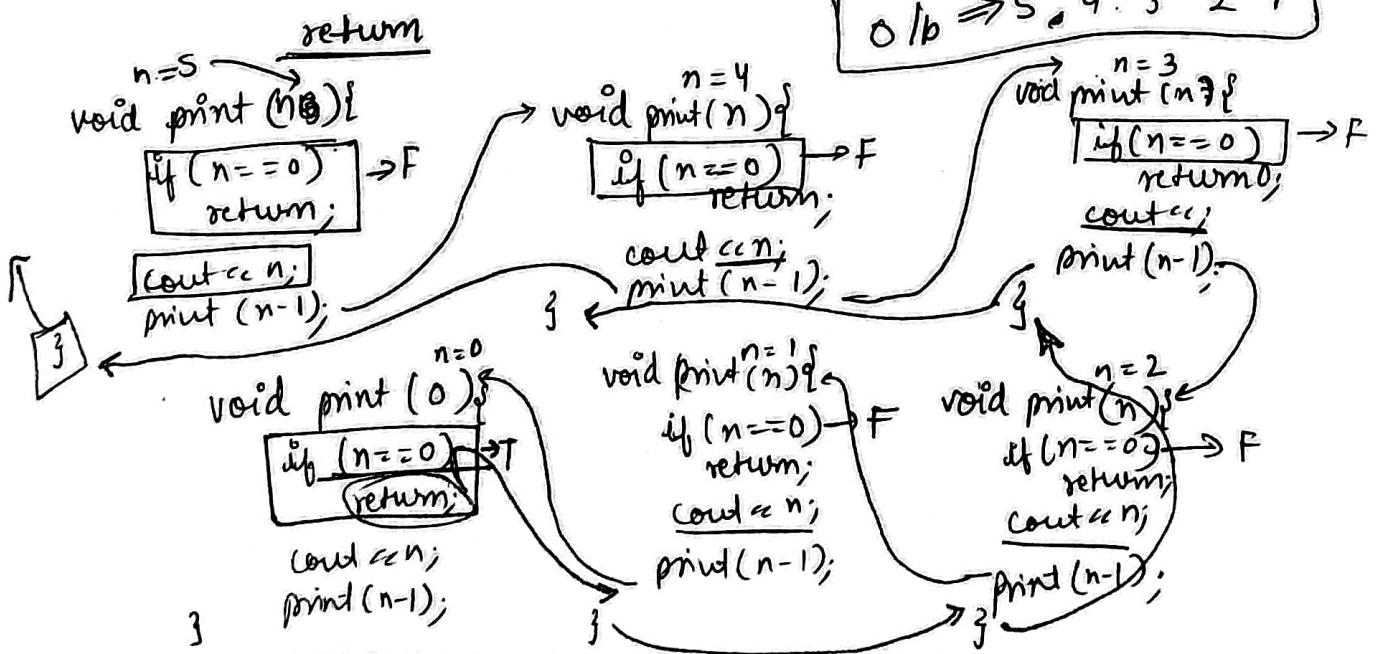 o/p => 5, 4. 3 2 1
return
n=5
void print (n){
if (n==0) → F
return;
cout << n;
print (n-1);
}
n=4
void print(n){
if (n==0) → F
return;
cout << n;
print (n-1);
}
n=3
void print (n){
if (n==0) → F
return 0;
cout <<;
print (n-1);
}
n=2
void print(n){
if (n==0) → F
return;
cout << n;
print (n-1);
}
n=1
void print(n){
if (n==0) → F
return;
cout << n;
print (n-1);
}
n=0
void print (0){
if (n==0) → T
return;
cout << n;
print (n-1);
}